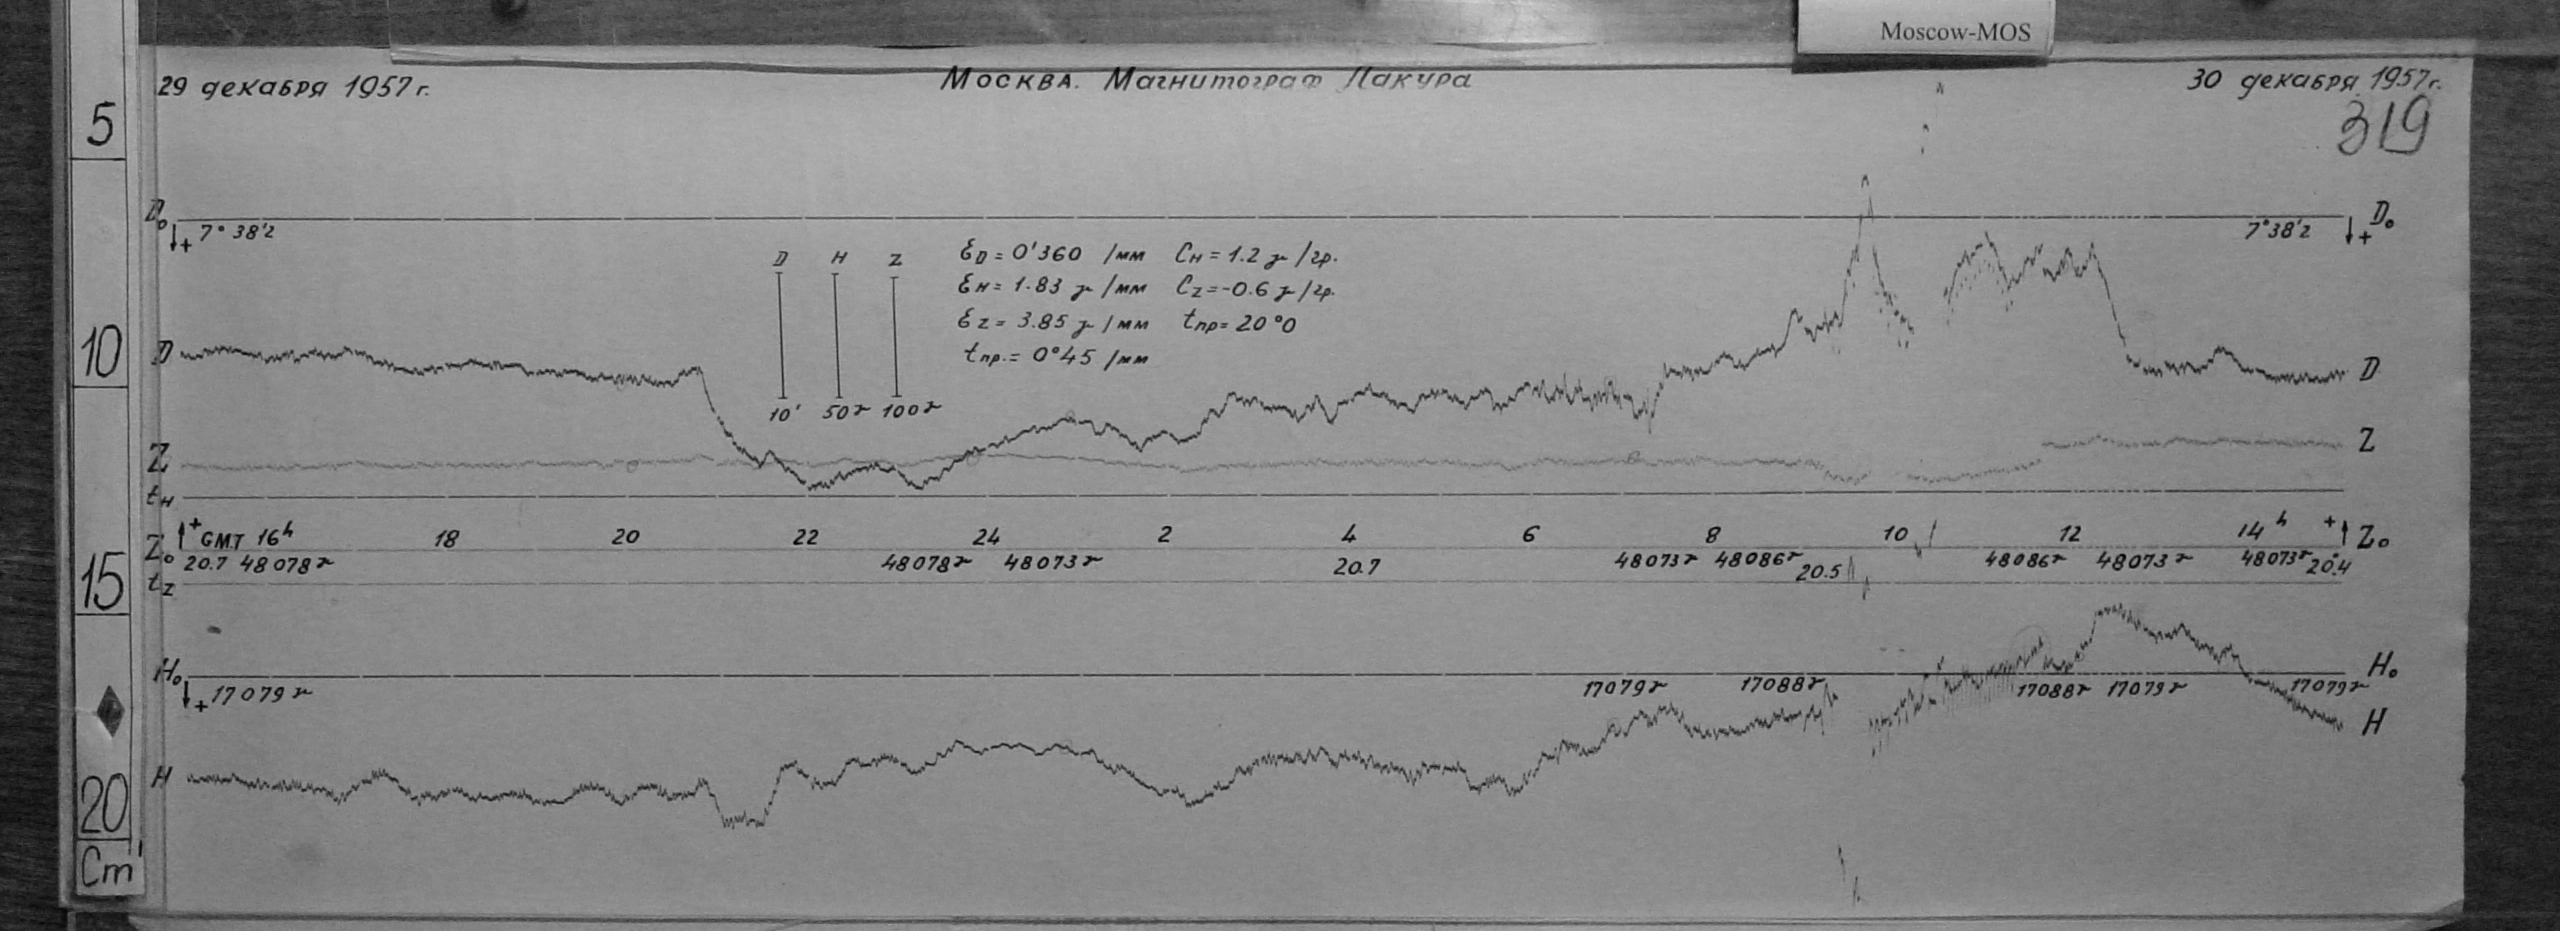 Moscow-MOS
29 декабря 1957 г.
Москва. Магнитограф Лакура
30 декабря 1957 г.
319
5
D₀ ↓+ 7° 38'2
7° 38'2 ↓+ D₀
D H Z
10' 50γ 100γ
ℰD = 0'360 /мм Cн = 1.2 γ/гр.
ℰн = 1.83 γ /мм Cz = -0.6 γ/гр.
ℰz = 3.85 γ /мм tпр = 20°0
tпр. = 0°45 /мм
10
D D
Z Z
tн
↑+ GMT 16ʰ 18 20 22 24 2 4 6 8 10 12 14ʰ +↑
Z₀ Z₀
20.7 48078γ 48078γ 48073γ 20.7 48073γ 48086γ 20.5 48086γ 48073γ 48073γ 20.4
15
tz
H₀ ↓+ 17079γ 17079γ 17088γ 17088γ 17079γ 17079γ H₀
H H
20
Cm